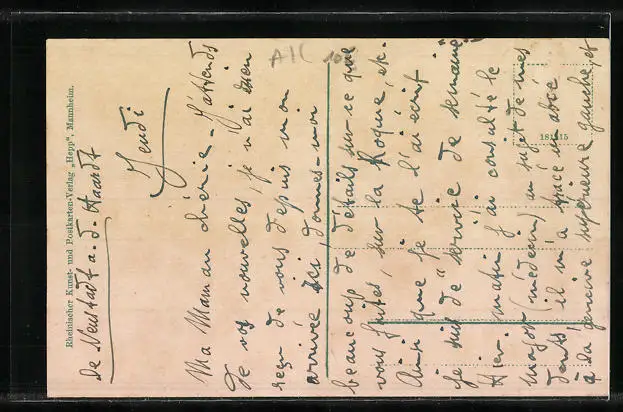 Rheinischer Kunst- und Postkarten-Verlag „Hepp", Mannheim.
De Neustadt a. d. Haardt
Jeudi
Ma Maman chérie - J'attends
de vos nouvelles, je n'ai rien
reçu de vous depuis mon
arrivée ici, donnes-moi
beaucoup de détails sur ce que
vous faites, sur la Roque, etc.
Ainsi que je te l'ai écrit
je suis de "service de semaine"
Hier matin j'ai consulté le
major (médecin) au sujet de mes
dents, il m'a percé un abcé
à la gencive supérieure gauche, et
181315
A1C
10